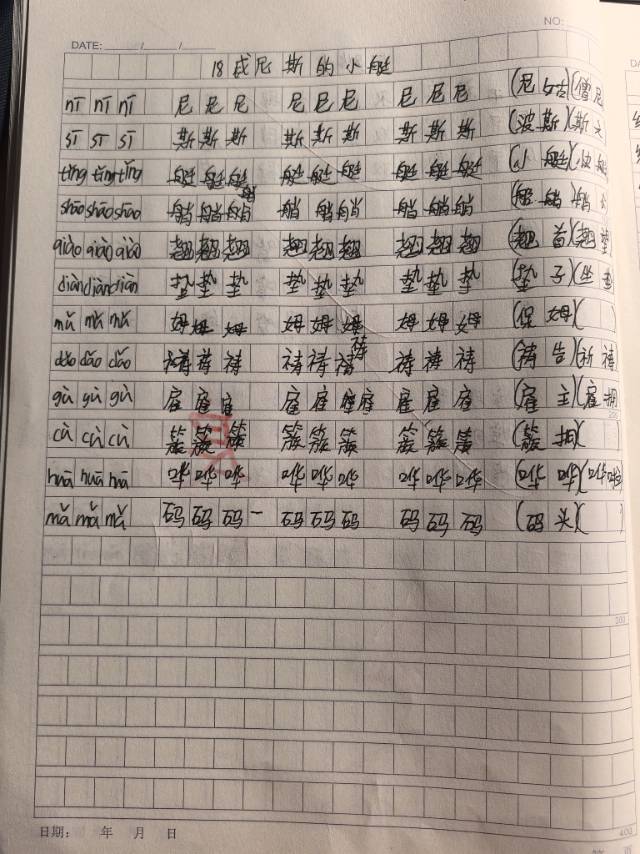 DATE: / /
NO:
18威尼斯的小艇
nī nī nī 尼尼尼 尼尼尼 尼尼尼 (尼姑)(僧尼
sī sī sī 斯斯斯 斯斯斯 斯斯斯 (波斯)(斯文
tǐng tǐng tǐng 艇艇艇 艇艇艇 艇艇艇 (小艇)(快艇
shāo shāo shāo 艄艄艄艄 艄艄 艄艄艄 (船艄)(艄
qiào qiào qiào 翘翘翘 翘翘翘 翘翘翘 (翘首)(翘垫
diàn diàn diàn 垫垫垫 垫垫垫 垫垫垫 (垫子)(坐垫
mǔ mǔ mǔ 姆姆姆 姆姆姆 姆姆姆 (保姆)( )
dǎo dǎo dǎo 祷祷祷 祷祷祷祷 祷祷祷 (祷告)(祈祷
gù gù gù 雇雇雇 雇雇雇雇 雇雇雇 (雇主)(雇拥
cù cù cù 簇簇簇 簇簇簇 簇簇簇 (簇拥)( )
huā huā huā 哗哗哗 哗哗哗 哗哗哗 (哗哗)(哗啦
mǎ mǎ mǎ 码码码一 码码码 码码码 (码头)( )
200
400
日期: 年 月 日